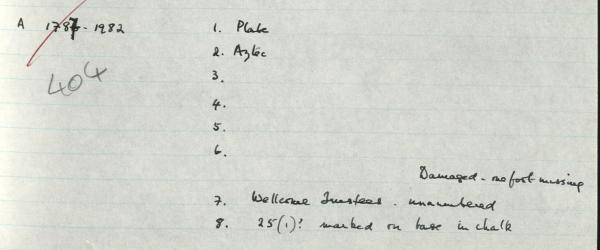 A 1787-1982 1. Plate
2. Aztec
404 3.
4.
5.
6.
Damaged - no foot missing
7. Wellcome Trustees. unnumbered
8. 25(1)? marked on base in chalk